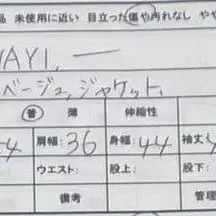 品 未使用に近い 目立った傷や汚れなし やや
ベージュ, ジャケット,
春 薄 伸縮性
4 肩幅: 36 身幅: 44 袖丈:
ウエスト: 股上: 股下:
備考 管理